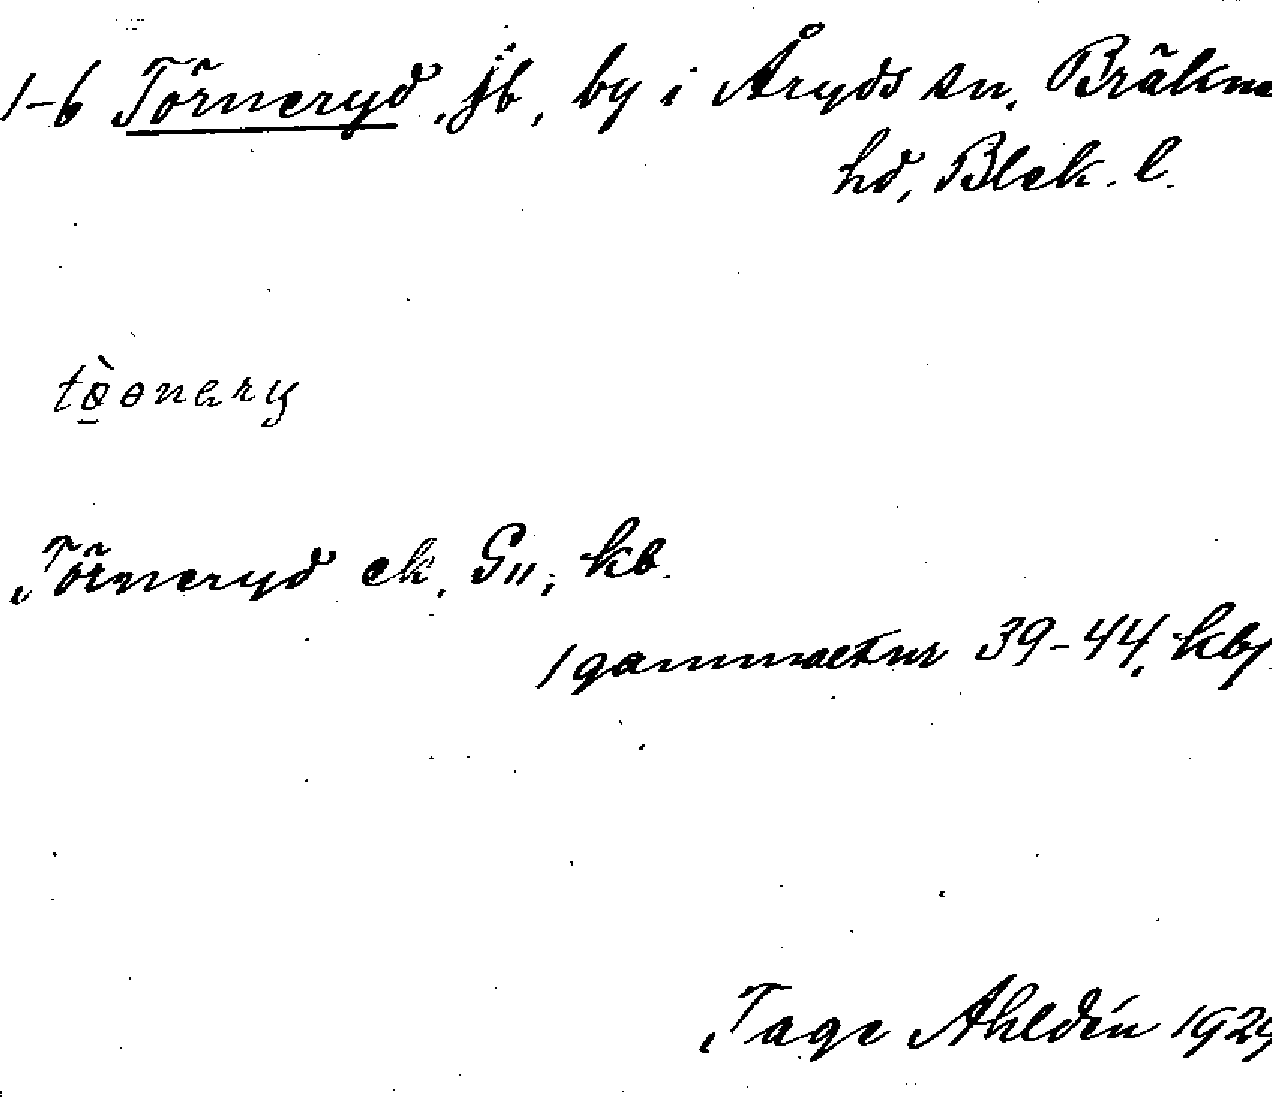 1-6 Törneryd, jb, by i Åryds sn, Bräkne
hd, Blek. l.
Törneryd ek, G11, kb.
39-44, kb/
Tage Ahldén 1929